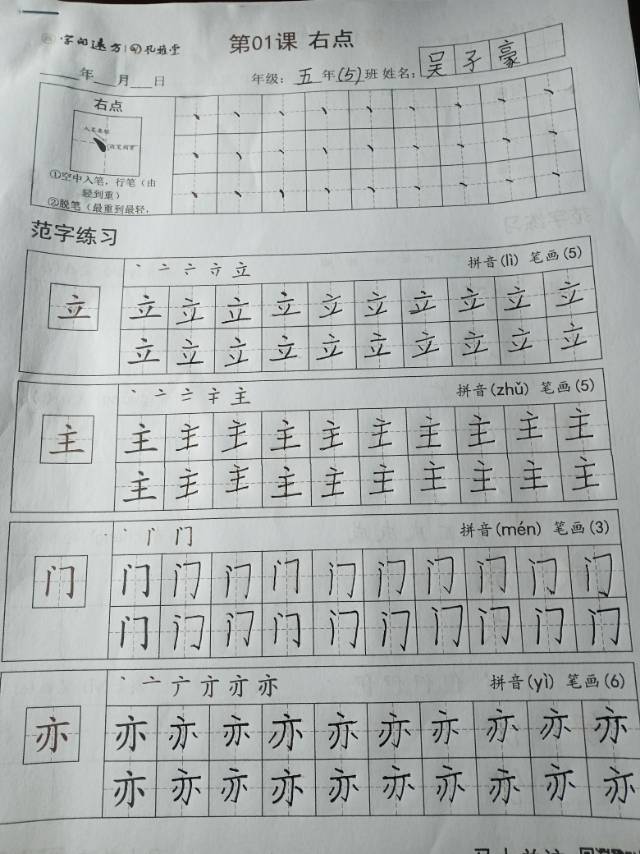 第01课 右点
年 月 日 年级：五年(5)班 姓名：吴子豪
右点
①空中入笔，行笔（由
轻到重）
②脱笔（最重到最轻，
丶 丶 丶 丶 丶 丶 丶 丶 丶
丶 丶 丶 丶 丶 丶 丶 丶 丶
丶 丶 丶 丶 丶 丶 丶 丶 丶
范字练习
立 拼音(lì) 笔画(5)
立
立 立 立 立 立 立 立 立 立 立
立 立 立 立 立 立 立 立 立 立
主 拼音(zhǔ) 笔画(5)
主
主 主 主 主 主 主 主 主 主 主
主 主 主 主 主 主 主 主 主 主
门 拼音(mén) 笔画(3)
门
门 门 门 门 门 门 门 门 门 门
门 门 门 门 门 门 门 门 门 门
亦 拼音(yì) 笔画(6)
亦
亦 亦 亦 亦 亦 亦 亦 亦 亦 亦
亦 亦 亦 亦 亦 亦 亦 亦 亦 亦